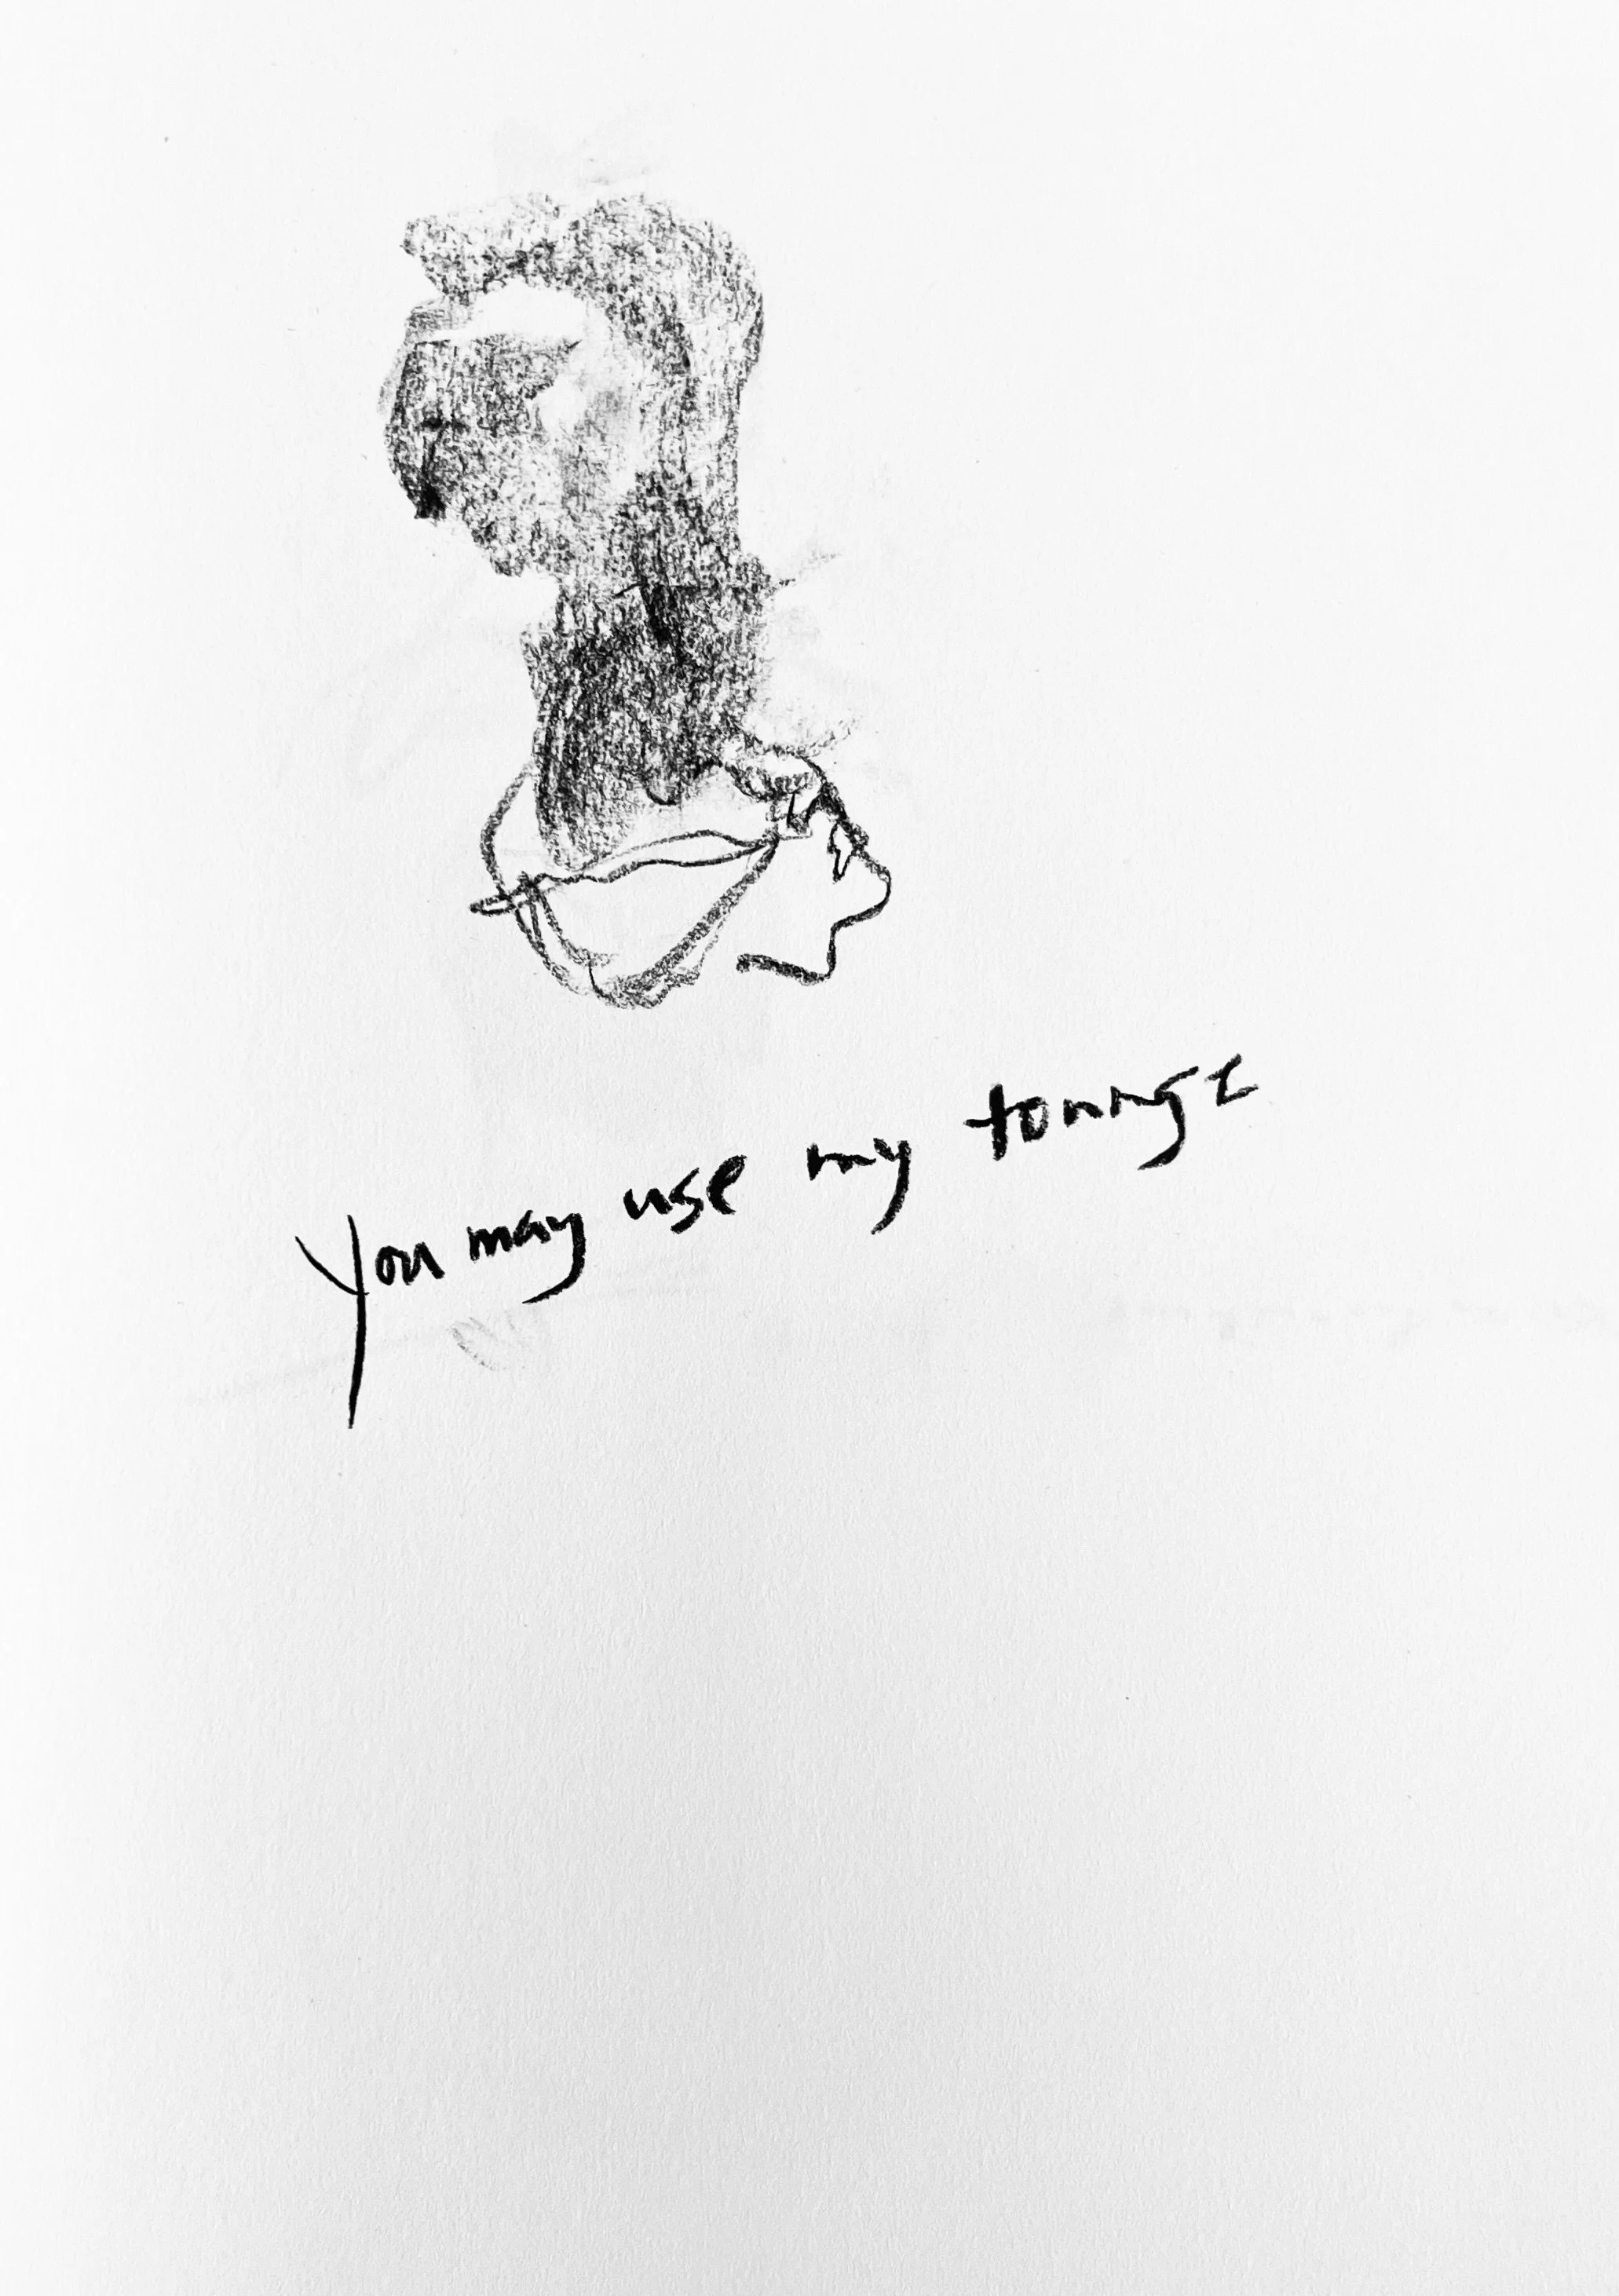 You may use my tounge